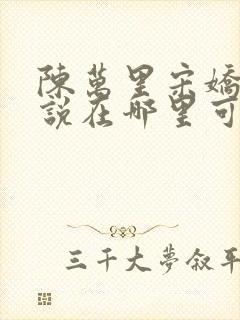 陳萬里宋嬌
說在哪里可
三千大夢叙平